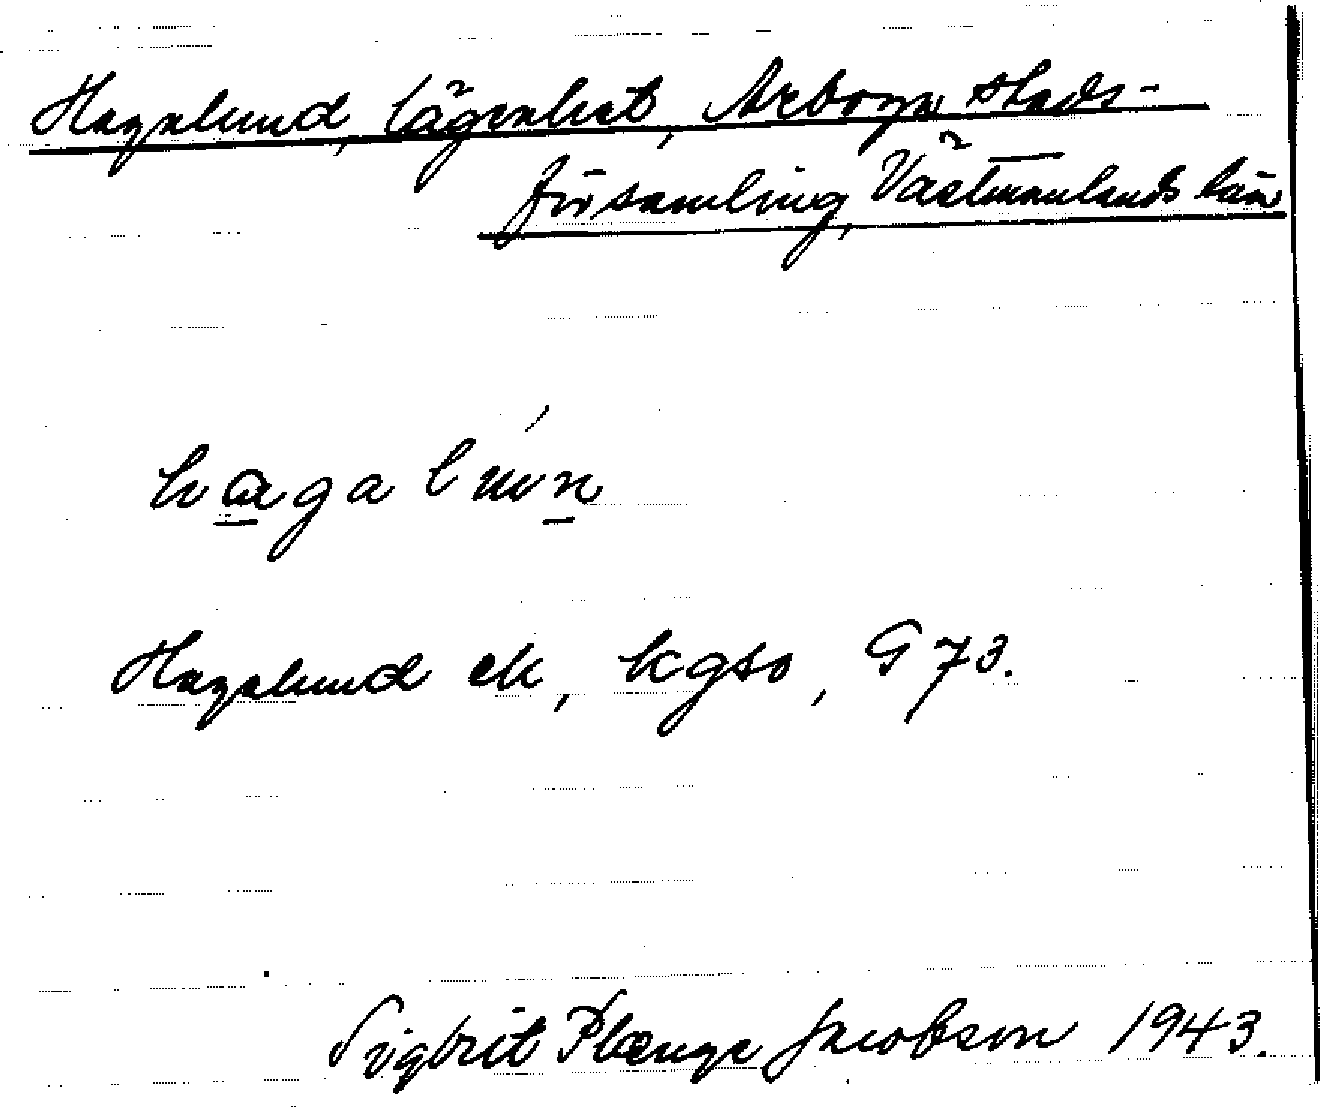 Hagalund, lägenhet, Arboga stads-
församling, Västmanlands län
hagalún
Hagalund ek, kgso, G 73.
Sigbrit Plænge Jacobson 1943.